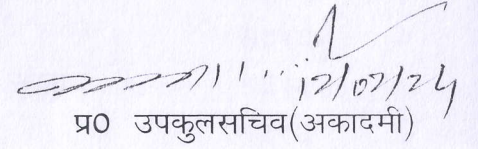 12/07/24
प्र0 उपकुलसचिव(अकादमी)